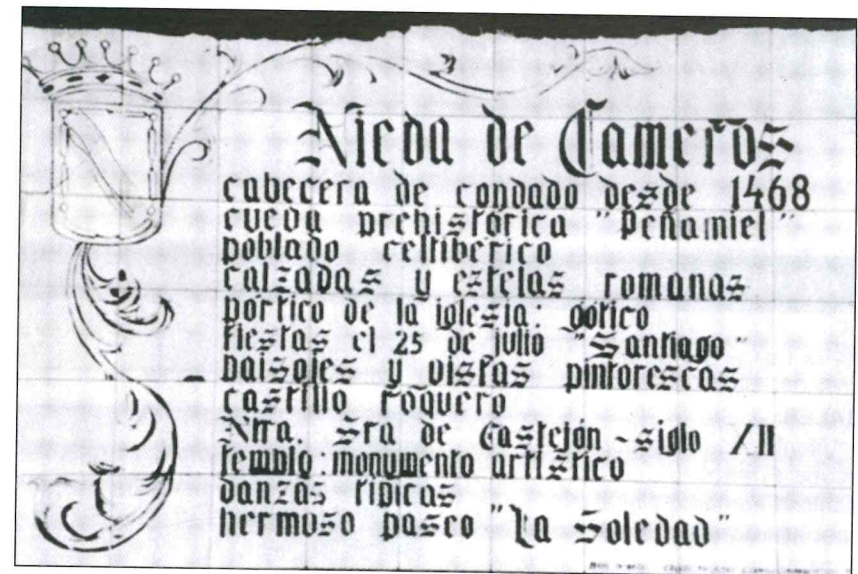 Nieva de Cameros
cabecera de condado desde 1468
cueva prehistórica "Peñamiel"
poblado celtibérico
calzadas y estelas romanas
pórtico de la iglesia: gótico
fiestas el 25 de julio "Santiago"
paisajes y vistas pintorescas
castillo roquero
Ntra. Sra de Castejón - siglo
templo: monumento artístico
danzas típicas
hermoso paseo "La Soledad"